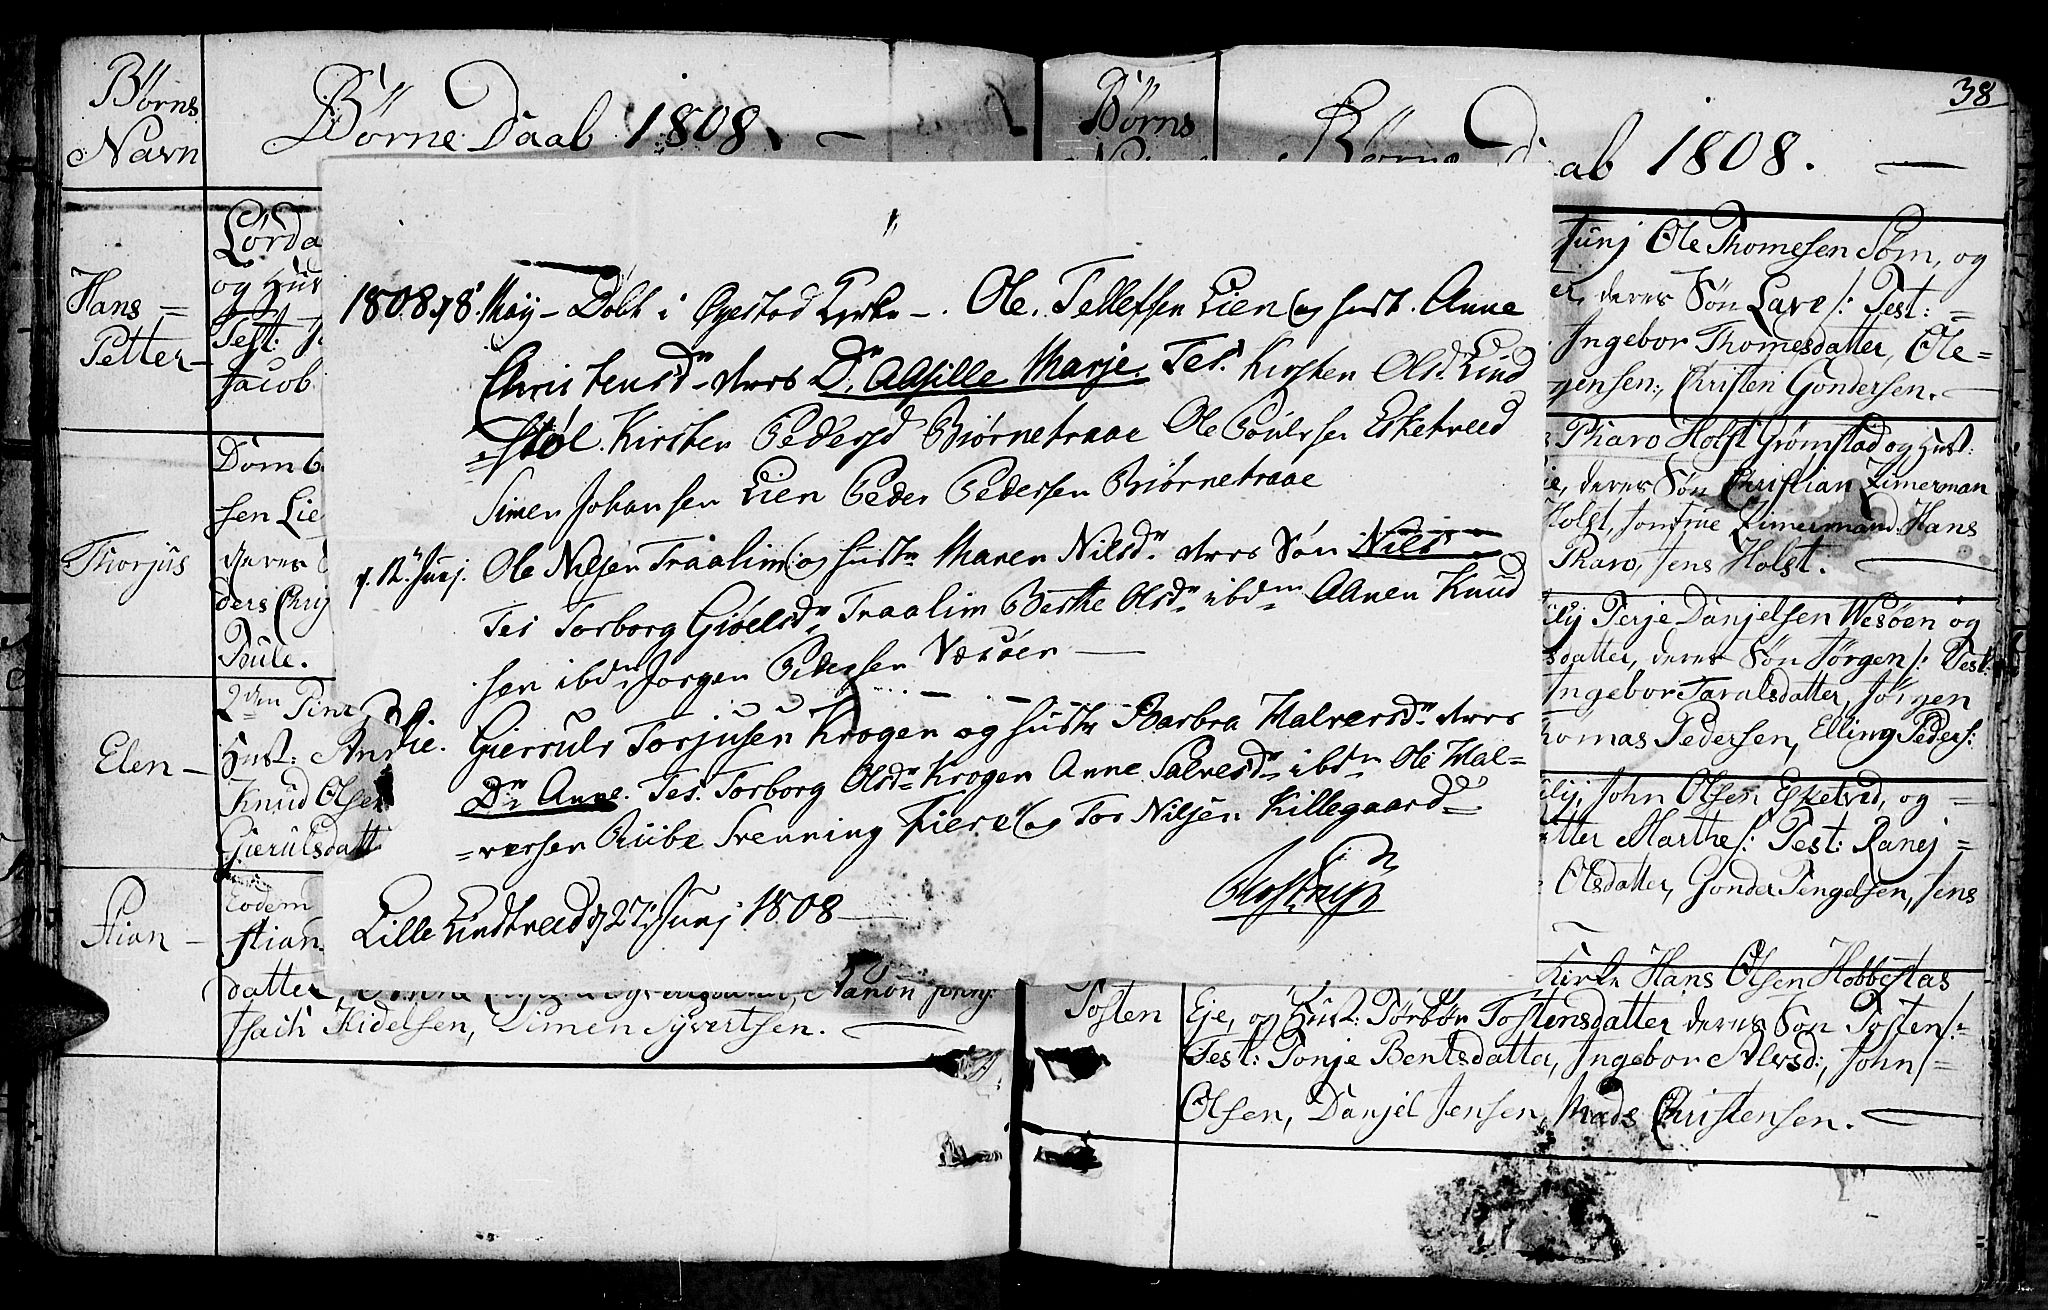 Børns
Navn
Børne Daab 1808. —
Hans =
Petter —
Lørda
og Hus
Test: J
Jacob
Thorjus
Dom
sen Lie
deres
ders Chri
Poule.
Elen —
2den Pint
Hust:
Knud Olsen
Gierulsdatt
Stian —
Eodem
Stian
datter,
Isach Kidelsen, Simen Syvertsen. —
1808 d. 8. May – Døbt i Øyestad Kirke –. Ole Tellefsen Lien og Hust. Anne
Christensdr deres Dr. Assille Marje. Tes. Kirsten Olsdr Lind
=støl. Kirsten Pedersd Biørnetraae Ole Poulsen Esketveed
Simen Johansen Lien Peder Pedersen Biørnetraae
d. 12 Junj. Ole Nilsen Traalim og Hustr Maren Nilsdr deres Søn Nils
Tes Torborg Giøelsdr Traalim Berthe Olsdr ibdm Aanen Knud
sen ibdm Jørgen Pedersen Væsøen —
Gierruls Torjusen Krogen og Hustr Barbra Halversdr deres
Dr. Anne. Tes. Torborg Olsdr Krogen Anne Salvesdr ibdm Ole Hal=
=versen Riibe Svenning Fiere og Tor Nilsen Killegaard
Lille Lindtveed d. 27. Junj 1808 —
Børns
Børne Daab 1808. —
38
Junj Ole Thomesen Søm, og
er, deres Søn Lave /: Test: =
Ingebor Thomesdatter, Ole =
gensen:, Christen Gondersen. —
Pharo Holst Grømstad og Hust:
ie, deres Søn Christian Zimerman
Holst, Jomfrue Zimermand. Hans
Pharo, Jens Holst. —
July Terje Danjelsen Wesøen og
sdatter, deres Søn Jørgen /: Test:
Ingebor Taralsdatter, Jørgen
homas Pedersen, Elling Peders:
July, John Olsen Esketved, og =
atter Marthe /: Test: Ranej =
Olsdatter, Gonder Tengelsen, Jens
Tosten
Kirke Hans Olsen Hobbestas
Eje, og Hust: Tørbør Tostensdatter deres Søn Tosten /:
Test: Tonje Bentsdatter, Ingebor Alvsd:, John /=
Olsen, Danjel Jensen, Mads Christensen. —